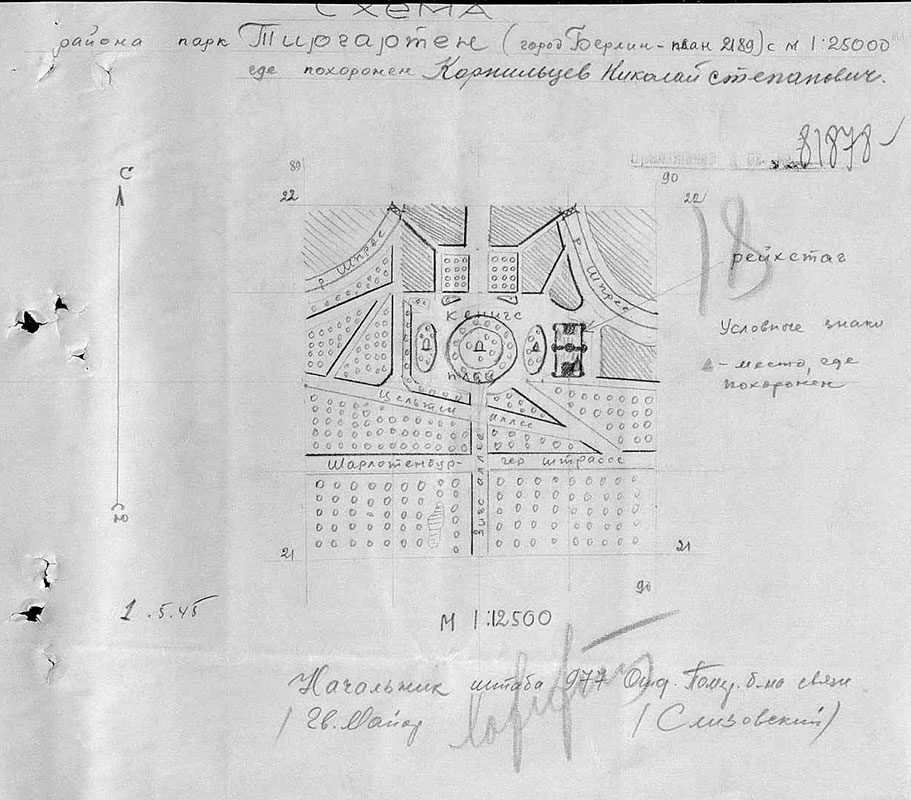 СХЕМА
района парк Тиргартен (город Берлин - план 2189) с М 1:25000
где похоронен Корнильцев Николай Степанович.
81878
С
89
90
22
22
18
р. Шпрее
р. Шпрее
рейхстаг
Кенигс
плац
Условные знаки
- место, где
похоронен
Цельтен аллее
Шарлотенбур- гер штрассе
Зигс аллее
Ю
21
21
90
1.5.45
М 1:12500
Начальник штаба 977 Отд. б-на связи
/ Гв. Майор / Слизовский)